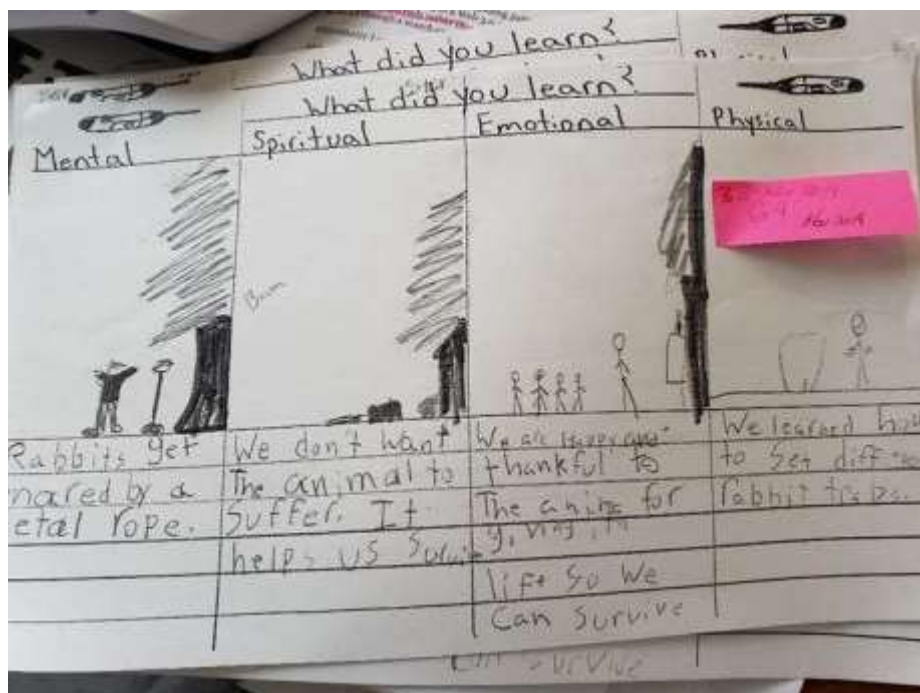 What did you learn?
What did you learn?
Mental
Spiritual
Emotional
Physical
Rabbits get
nared by a
etal rope.
We don't want
The animal to
Suffer. It
helps us
We are Happy and
thankful to
The for
life So We
Can Survive
We learned how
to Set
rabbit
Survive